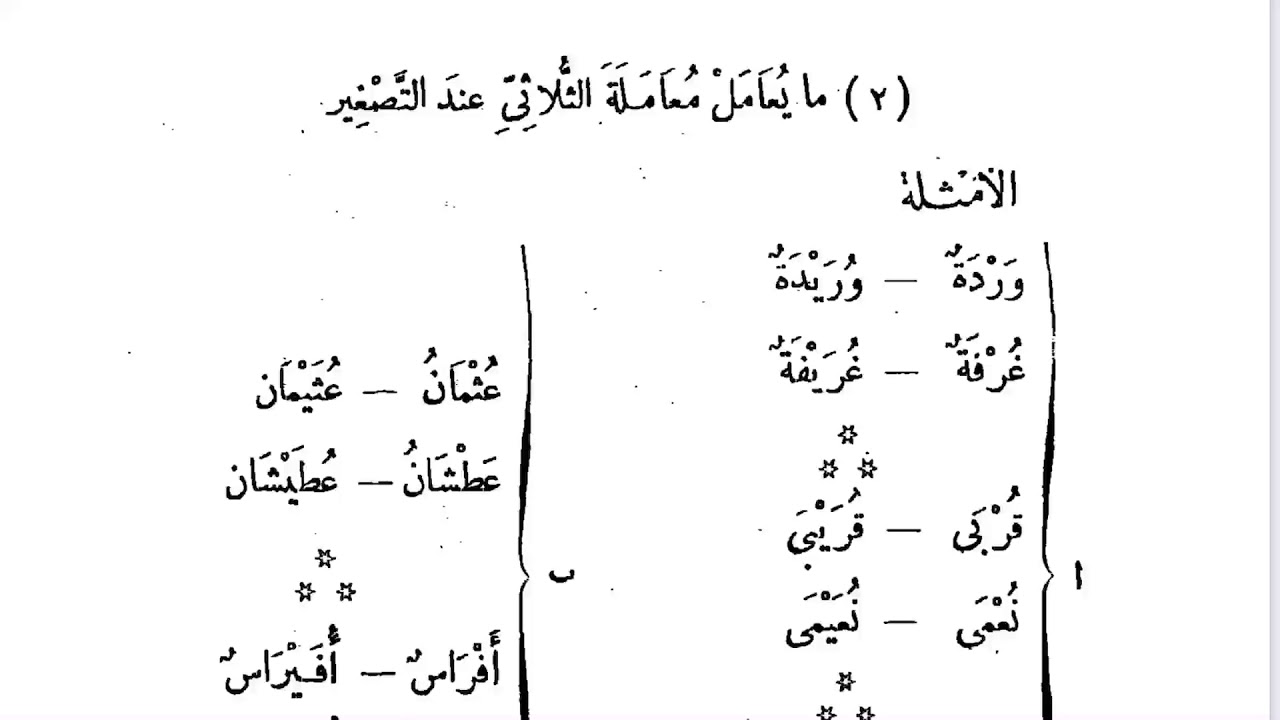 (٢) ما يُعَامَلْ مُعَامَلَةَ الثُّلاثِيِّ عندَ التَّصْغِير
الأمْثلة
ا
وَرْدَةٌ — وُرَيْدَةٌ
غُرْفَةٌ — غُرَيْفَةٌ
قُرْبَى — قُرَيْبَى
نُعْمَى — نُعَيْمَى
ب
عُثْمَانُ — عُثَيْمَان
عَطْشَانُ — عُطَيْشَان
أَفْرَاسٌ — أُفَيْرَاسٌ